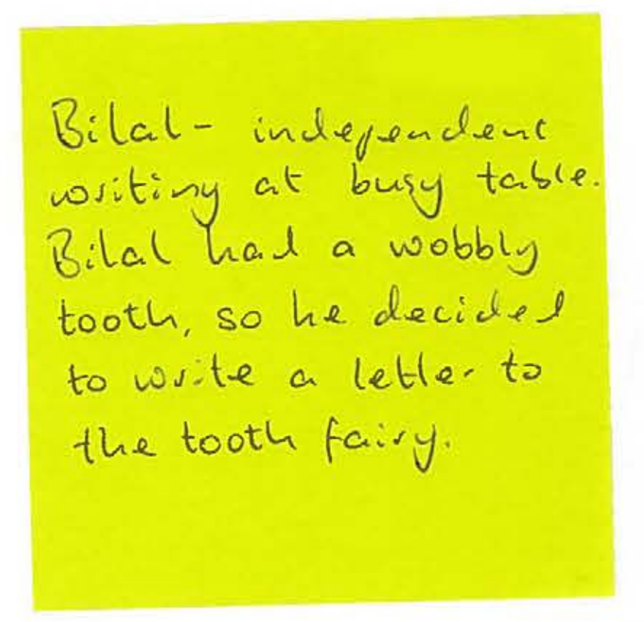 Bilal - independent
writing at busy table.
Bilal had a wobbly
tooth, so he decided
to write a letter to
the tooth fairy.